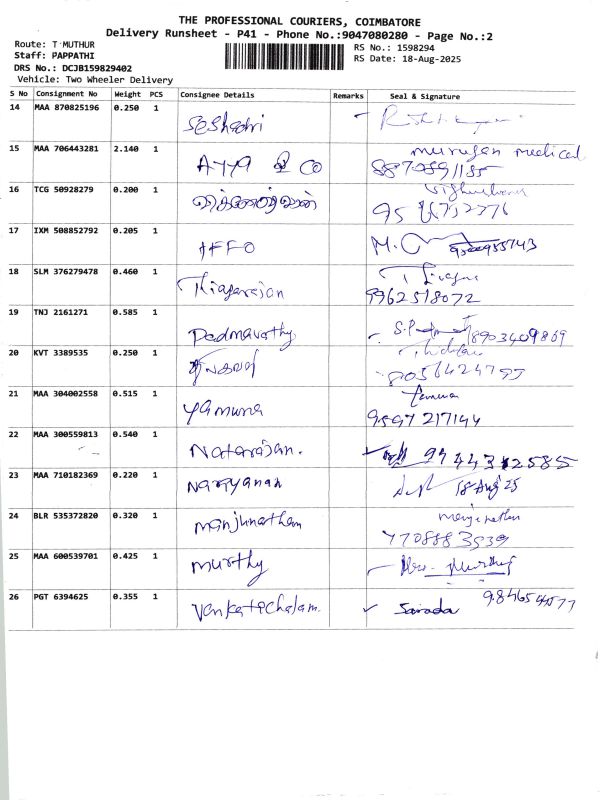 THE PROFESSIONAL COURIERS, COIMBATORE
Delivery Runsheet - P41 - Phone No.:9047080280 - Page No.:2
Route: T MUTHUR
Staff: PAPPATHI
DRS No.: DCJB159829402
Vehicle: Two Wheeler Delivery
RS No.: 1598294
RS Date: 18-Aug-2025
S No Consignment No Weight PCS Consignee Details Remarks Seal & Signature
14 MAA 870825196 0.250 1 Seshadri
15 MAA 706443281 2.140 1 AYYA & CO murugan medical
8870891185
16 TCG 50928279 0.200 1
17 IXM 508852792 0.205 1 IFFO
18 SLM 376279478 0.460 1 Thiagarajan
9962518072
19 TNJ 2161271 0.585 1 Padmavathy S.P 8903409869
20 KVT 3389535 0.250 1
8056424795
21 MAA 304002558 0.515 1 yamuna
9597217144
22 MAA 300559813 0.540 1 Natarajan. 9444312585
23 MAA 710182369 0.220 1 Narayanan 18 Aug 25
24 BLR 535372820 0.320 1 manjunatham manjunathan
7708883539
25 MAA 600539701 0.425 1 murthy Murthy
26 PGT 6394625 0.355 1 Venkatachalam. Sarada